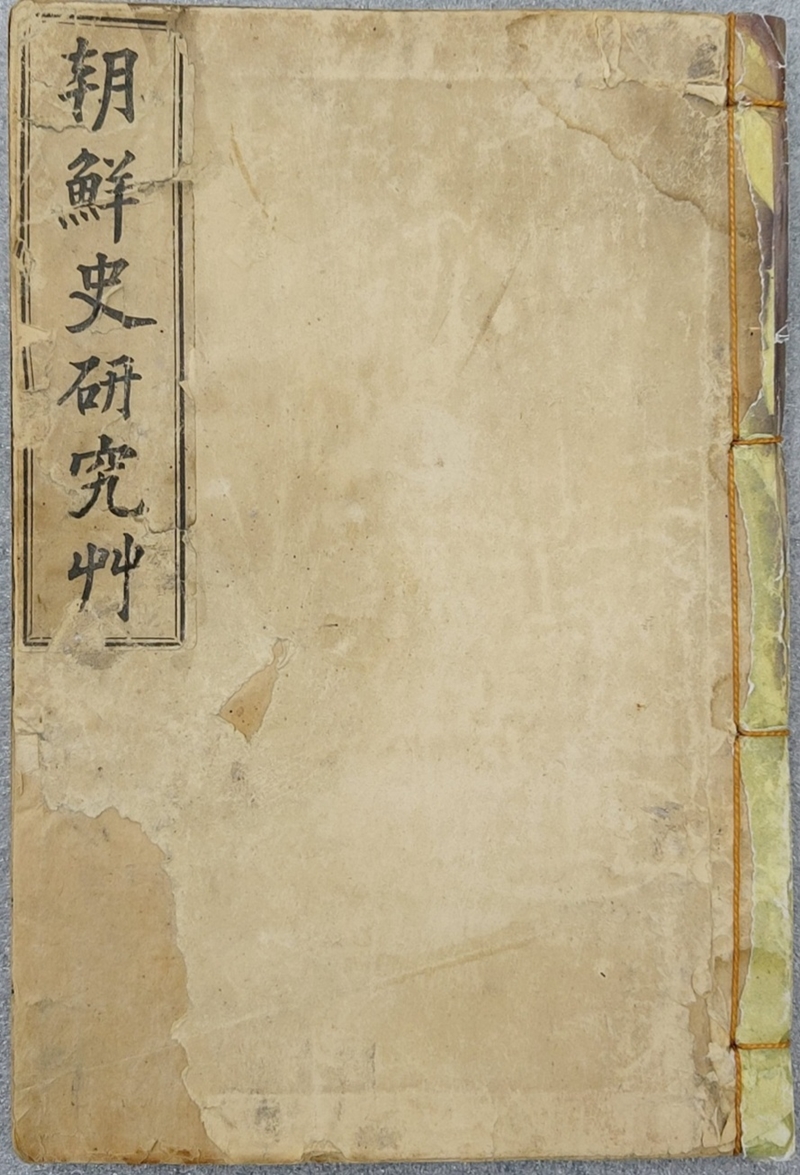 朝鮮史硏究艸